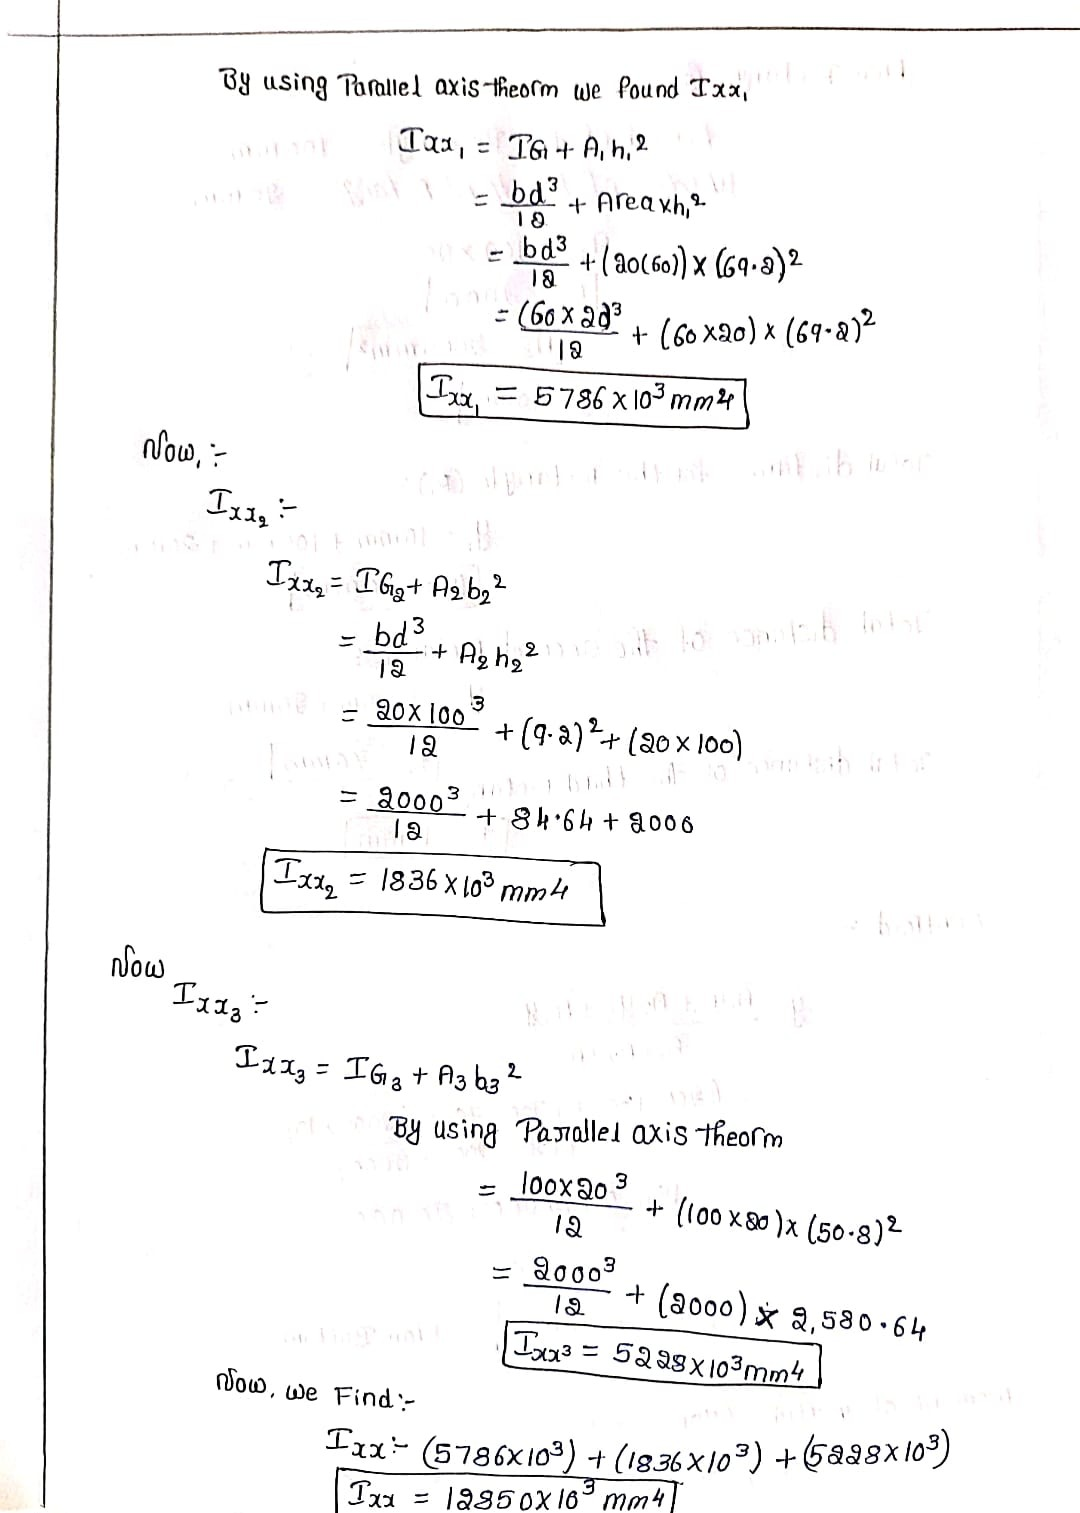 By using Parallel axis-theorm we found Ixx₁
Ixx₁ = IG₁ + A₁h₁²
= bd³/12 + Area×h₁²
= bd³/12 + (20(60)) × (69.2)²
= (60 × 20³/12 + (60 ×20) × (69.2)²
Ixx₁ = 5786 × 10³ mm4
Now, :-
Ixx₂ :-
Ixx₂ = IG₂ + A₂b₂²
= bd³/12 + A₂h₂²
= 20×100³/12 + (9.2)² + (20 × 100)
= 2000³/12 + 84.64 + 2000
Ixx₂ = 1836 × 10³ mm4
Now
Ixx₃ :-
Ixx₃ = IG₃ + A₃b₃²
By using Parallel axis theorm
= 100×20³/12 + (100 ×20)× (50.8)²
= 2000³/12 + (2000) × 2,580.64
Ixx³ = 5228×10³mm4
Now, we Find:-
Ixx:- (5786×10³) + (1836×10³) + (5228×10³)
Ixx = 12850×10³ mm4